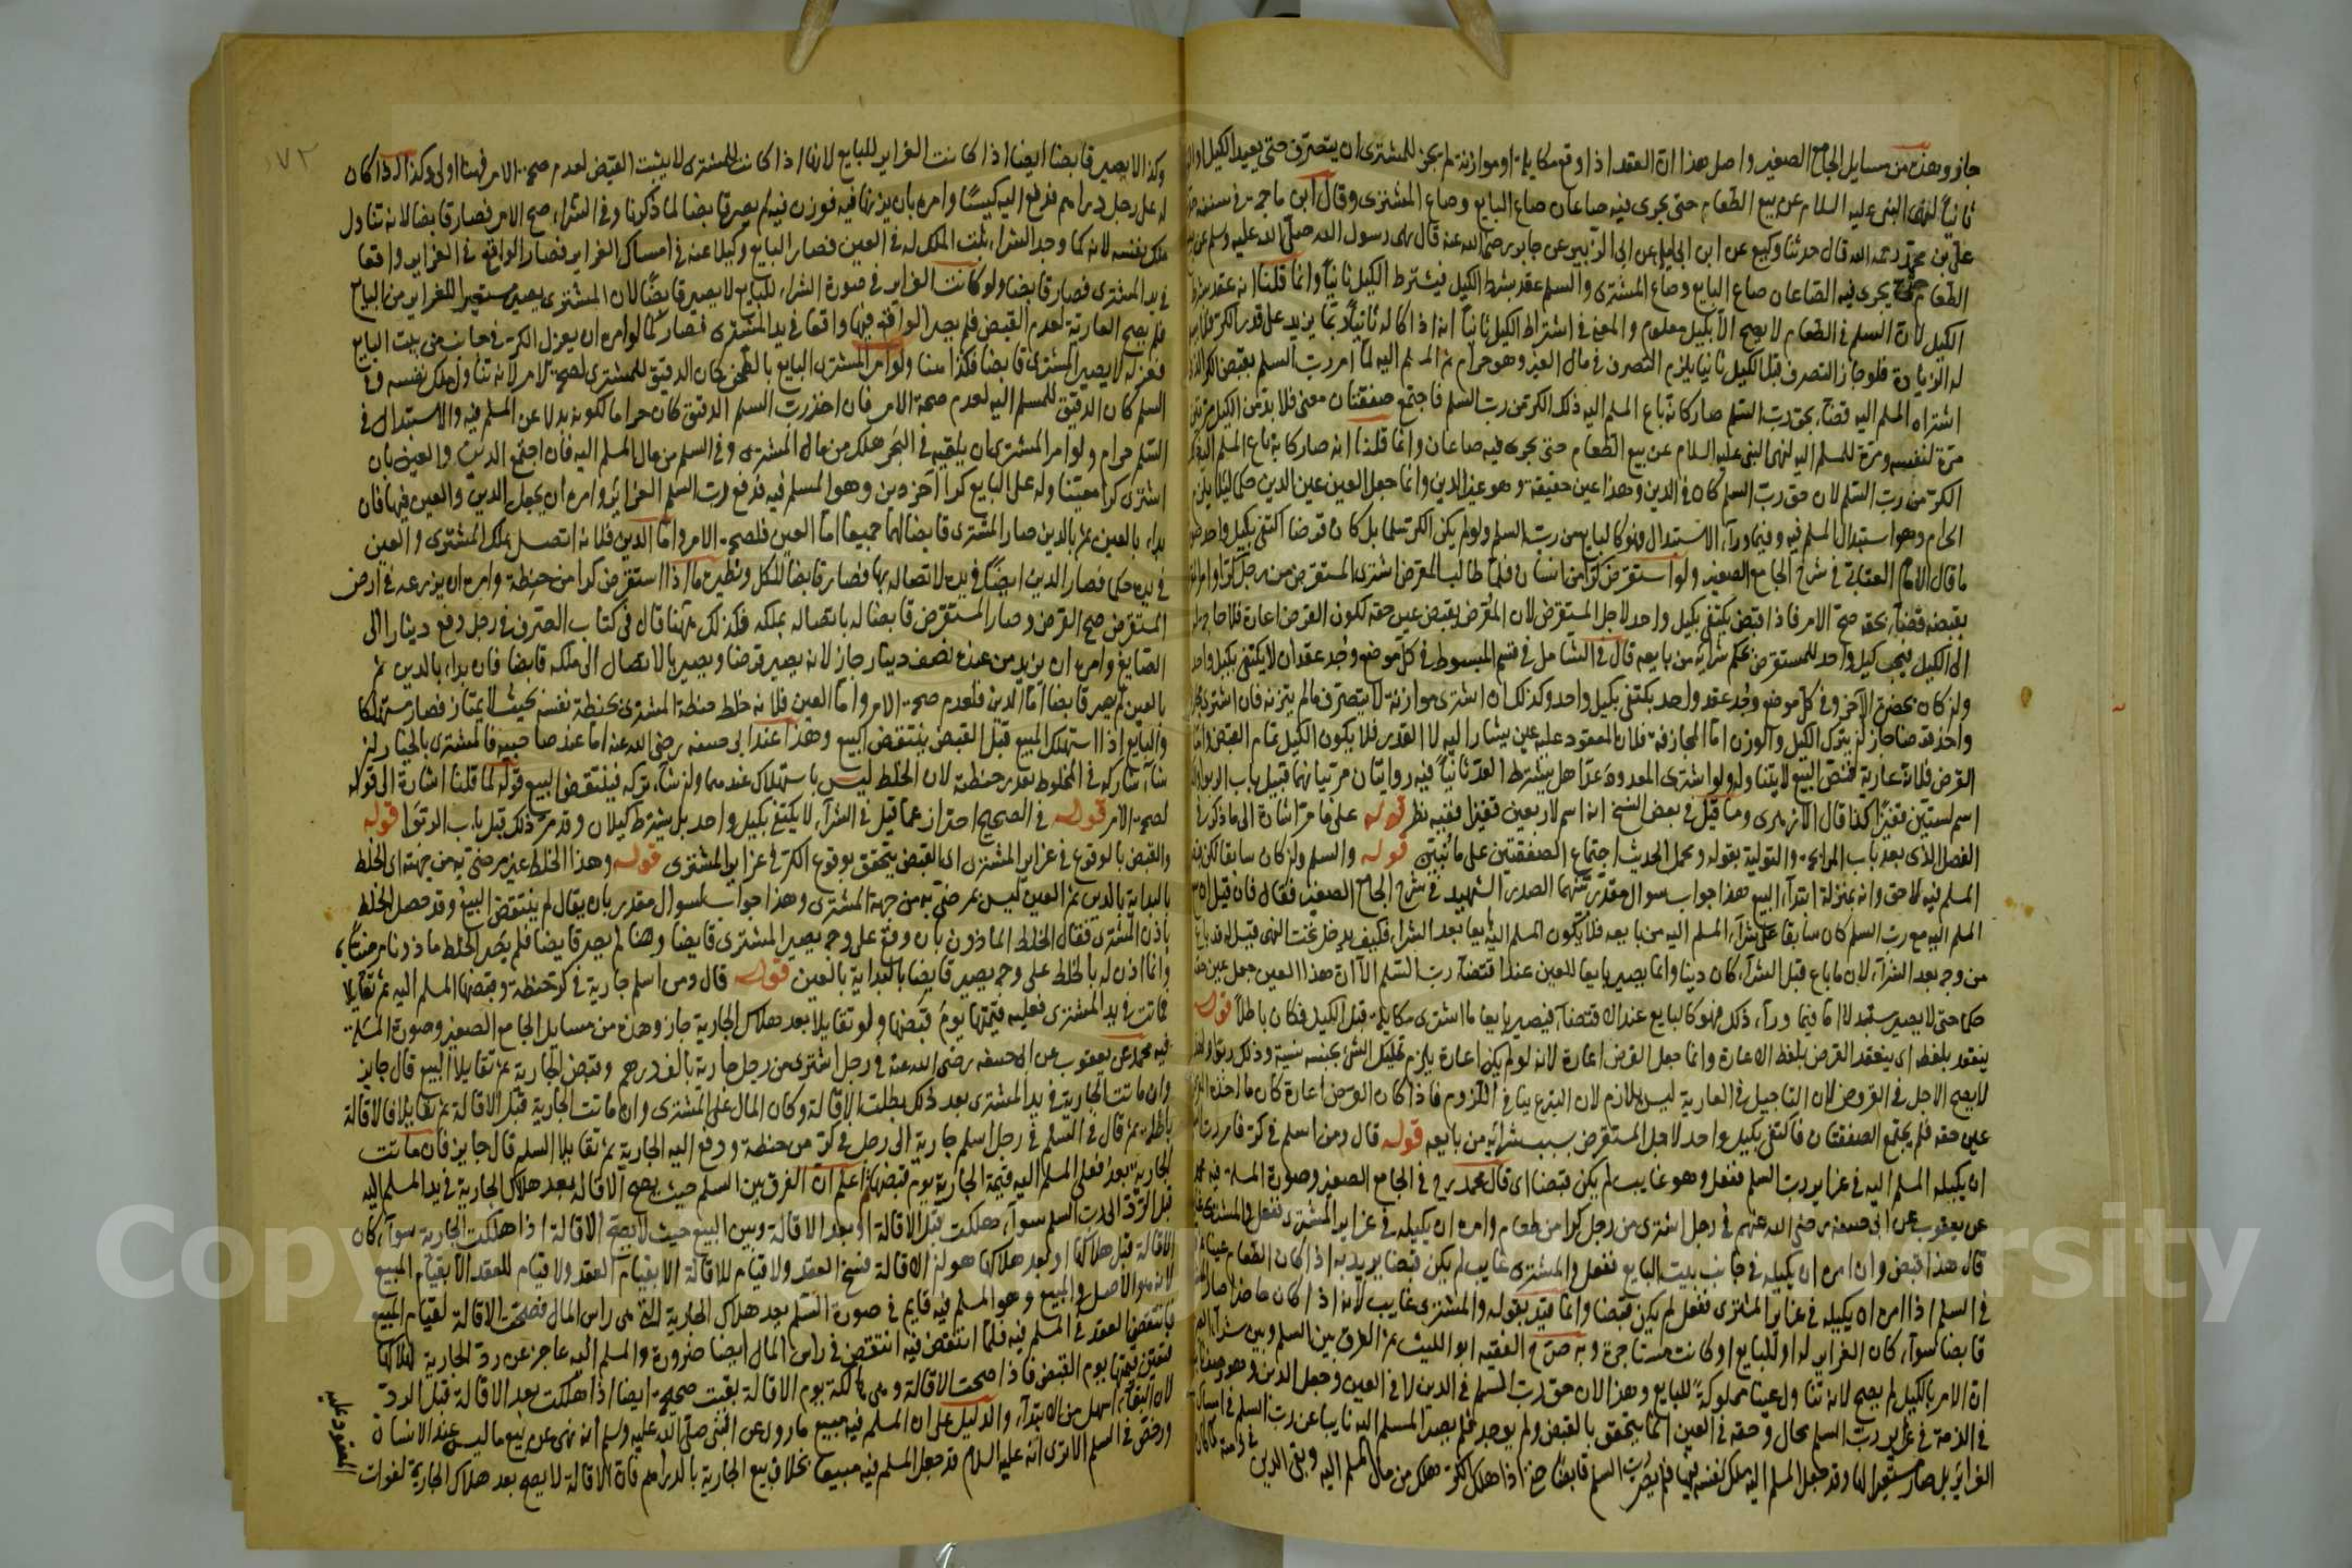 جاز وهذه من مسايل الجامع الصغير واصل هذا ان العقد اذا وقع مكايلة او موازنة لم يجز للمشترى ان يتصرف حتى يعيد الكيل
ثانيا لنهى النبى عليه السلام عن بيع الطعام حتى يجرى فيه صاعان صاع البايع وصاع المشترى وقال ابن ماجه فى سننه
على بن محمد رحمه الله قال حدثنا وكيع عن ابن ابى ليلى عن ابى الزبير عن جابر رضى الله عنه قال نهى رسول الله صلى الله عليه وسلم عن
الطعام حتى يجرى فيه الصاعان صاع البايع وصاع المشترى والسلم عقد بشرط الكيل فيشترط الكيل ثانيا وانما قلنا انه عقد
الكيل لان السلم فى الطعام لا يصح الا بكيل معلوم والمعنى فى اشتراط الكيل ثانيا انه اذا كاله ثانيا ربما يزيد على قدر الكر
له الزيادة فلو جاز التصرف قبل الكيل ثانيا يلزم التصرف فى مال الغير وهو حرام ثم المسلم اليه لما امر رب السلم بقبض الكر الذى
اشتراه المسلم اليه قضاء بحق رب السلم صار كانه باع المسلم اليه ذلك الكر من رب السلم فاجتمع صفقتان معنى فلا بد من الكيل مرتين
مرة لنفسه ومرة للمسلم اليه لنهى النبى عليه السلام عن بيع الطعام حتى يجرى فيه صاعان وانما قلنا انه صار كانه باع المسلم اليه
الكر من رب السلم لان حق رب السلم كان فى الدين وهذا عين حقيقة وهو غير الدين وانما جعل العين عين الدين حكما لئلا يلزم
الحرام وهو استبدال المسلم فيه وفيما وراء الاستبدال فهو كالبايع من رب السلم ولو لم يكن الكر سلما بل كان قرضا اكتفى بكيل واحد
ما قال الامام العتابى فى شرح الجامع الصغير ولو استقرض كرا من انسان فلما طالب المقرض اشترى المستقرض من رجل كرا وامر
بقبضه قضاء بحقه صح الامر فاذا قبض يكتفى بكيل واحد لاجل المستقرض لان المقرض يقبض عين حقه لكون القرض اعارة فلا حاجة
الى الكيل فيجب كيل واحد للمستقرض بحكم شرائه من بايعه قال فى الشامل فى قسم المبسوط فى كل موضع وجد عقدان لا يكتفى بكيل واحد
وان كان بحضرة الآخر وفى كل موضع وجد عقد واحد يكتفى بكيل واحد وكذلك ان اشترى موازنة لا يتصرف ما لم يتزنه فان اشترى
واخذ قرضا جاز ان يترك الكيل والوزن اما المجازفة فلان المعقود عليه عين يشار اليه لا القدر فلا يكون الكيل تمام القبض واما
القرض فلانه عارية فنص البيع لا يتناوله ولو اشترى المعدود عدا هل يشترط العد ثانيا فيه روايتان مر بيانهما قبيل باب الربوا
اسم لستين قفيزا كذا قال الازهرى وما قيل فى بعض النسخ انه اسم لاربعين قفيزا ففيه نظر قوله على ما مر اشارة الى ما ذكر فى
الفصل الذى بعد باب المرابحة والتولية بقوله ومحمل الحديث اجتماع الصفقتين على ما نبين قوله والسلم وان كان سابقا لكن
المسلم فيه لاحق وانه بمنزلة ابتداء البيع هذا جواب سوال مقدر تنبها الصدر الشهيد فى شرح الجامع الصغير فقال فان قيل ان
المسلم اليه مع رب السلم كان سابقا على شراء المسلم اليه من بايعه فلا يكون المسلم اليه بايعا بعد الشراء فكيف يدخل تحت النهى قيل له
من وجه بعد الشراء لان ما باع قبل الشراء كان دينا وانما يصير بايعا للعين عند اقتضاء رب السلم الا ان هذا العين جعل عين
حكما حتى لا يصير مستبدلا اما فيما وراء ذلك فهو كالبايع عند الاقتضاء فيصير بايعا ما اشترى مكايلة قبل الكيل فكان باطلا قوله
ينعقد بلفظه اى ينعقد القرض بلفظ الاعارة وانما جعل القرض اعارة لانه لو لم يكن اعارة يلزم تمليك الشئ بجنسه نسية وذلك ربوا
لا يصح الاجل فى القروض لان التاجيل فى العارية ليس بلازم لان التبرع ينافى اللزوم فاذا كان القرض اعارة كان ما اخذه
عين حقه فلم يجتمع الصفقتان فاكتفى بكيل واحد لاجل المستقرض بسبب شرائه من بايعه قوله قال ومن اسلم فى كر فامر رب
ان يكيله المسلم اليه فى غراير رب السلم ففعل وهو غايب لم يكن قبضا اى قال محمد رح فى الجامع الصغير وصورة المسئلة فيه محمد
عن يعقوب عن ابى حنيفة رضى الله عنهم فى رجل اشترى من رجل كرا من طعام وامره ان يكيله فى غراير المشترى ففعل والمشترى
قال هذا قبض وان امره ان يكيله فى جانب بيت البايع ففعل والمشترى غايب لم يكن قبضا يريد به اذا كان الطعام عينا
فى السلم اذا امره ان يكيله فى غراير المشترى ففعل لم يكن قبضا وانما قيد بقوله والمشترى غايب لانه اذا كان حاضرا صار
قابضا سواء كان الغراير له او للبايع او كانت مستاجرة وبه صرح الفقيه ابو الليث ثم الفرق بين السلم وبين شراء
ان الامر بالكيل لم يصح لانه تناول عينا مملوكة للبايع وهذا لان حق رب السلم فى الدين لا فى العين وجعل الدين وهو وصف
فى الذمة فى غراير رب السلم محال وحقه فى العين انما يتحقق بالقبض ولم يوجد فلم يصر المسلم اليه نايبا عن رب السلم فى امساك
الغراير بل صار مستعيرا لها وقد جعل المسلم اليه ملك نفسه فيها فلم يصر رب السلم قابضا حتى اذا هلك الكر هلك من مال المسلم اليه وبقى الدين فى ذمته كما كان
١٧٢
وكذا لا يصير قابضا ايضا اذا كانت الغراير للبايع لانها اذا كانت للمشترى لا يثبت القبض لعدم صحة الامر فهنا اولى وكذا اذا كان
له على رجل دراهم فدفع اليه كيسا وامره بان يزنها فيه فوزن فيه لم يصر قابضا لما ذكرنا وفى الشراء صح الامر فصار قابضا لانه تناول
ملك نفسه لانه كما وجد الشراء يثبت الملك له فى العين فصار البايع وكيلا عنه فى امساك الغراير فصار الواقع فى الغراير واقعا
فى يد المشترى فصار قابضا ولو كانت الغراير فى صورة الشراء للبايع لا يصير قابضا لان المشترى يصير مستعيرا للغراير من البايع
فلم يصح العارية لعدم القبض فلم يصر الواقع فيها واقعا فى يد المشترى فصار كما لو امره ان يعزل الكر فى جانب من بيت البايع
فعزله لا يصير المشترى قابضا فكذا هنا ولو امر المشترى البايع بالطحن كان الدقيق للمشترى لصحة الامر لانه تناول ملك نفسه وفى
السلم كان الدقيق للمسلم اليه لعدم صحة الامر فان اخذ رب السلم الدقيق كان حراما لكونه بدلا عن المسلم فيه والاستبدال فى
السلم حرام ولو امر المشترى ان يلقيه فى البحر هلك من مال المشترى وفى السلم من مال المسلم اليه فان اجتمع الدين والعين بان
اشترى كرا معينا وله على البايع كرا آخر دين وهو المسلم فيه فدفع رب السلم الغراير وامره ان يجعل الدين والعين فيها فان
بداء بالعين ثم بالدين صار المشترى قابضا لهما جميعا اما العين فلصحة الامر واما الدين فلانه اتصل بملك المشترى والعين
فى يده حكما فصار الدين ايضا فى يده لاتصاله بها فصار قابضا للكل ونظيره ما اذا استقرض كرا من حنطة وامره ان يزرعه فى ارض
المستقرض صح القرض وصار المستقرض قابضا له باتصاله بملكه فكذلك ههنا قال فى كتاب الصرف فى رجل دفع دينارا الى
الصايغ وامره ان يزيد من عنده نصف دينار جاز لانه يصير قرضا ويصير بالاتصال الى ملكه قابضا فان بداء بالدين ثم
بالعين لم يصر قابضا اما الدين فلعدم صحة الامر واما العين فلانه خلط حنطة المشترى بحنطة نفسه بحيث لا يمتاز فصار مستهلكا
والبايع اذا استهلك المبيع قبل القبض ينتقض البيع وهذا عند ابى حنيفة رضى الله عنه اما عند صاحبيه فالمشترى بالخيار ان
شاء شاركه فى المخلوط بقدر حنطته لان الخلط ليس باستهلاك عندهما وان شاء تركه فينتقض البيع قوله لما قلنا اشارة الى قوله
لصحة الامر قوله فى الصحيح احتراز عما قيل فى الشراء لا يكتفى بكيل واحد بل يشترط كيلان وقد مر ذلك قبل باب الربوا قوله
والقبض بالوقوع فى غراير المشترى اى القبض يتحقق بوقوع الكر فى غراير المشترى قوله وهذا الخلط غير مرضى به من جهته اى الخلط
بالبداية بالدين ثم العين ليس بمرضى به من جهة المشترى وهذا جواب لسوال مقدر بان يقال لم ينتقض البيع وقد حصل الخلط
باذن المشترى فقال الخلط الماذون بان وقع على وجه يصير المشترى قابضا وهنا لم يصر قابضا فلم يصر الخلط ماذونا مرضيا به
وانما اذن له بالخلط على وجه يصير قابضا بالبداية بالعين قوله قال ومن اسلم جارية فى كر حنطة وقبضها المسلم اليه ثم تقايلا
فماتت فى يد المشترى فعليه قيمتها يوم قبضها ولو تقايلا بعد هلاك الجارية جاز وهذه من مسايل الجامع الصغير وصورة المسئلة
فيه محمد عن يعقوب عن ابى حنيفة رضى الله عنه فى رجل اشترى من رجل جارية بالف درهم وقبض الجارية ثم تقايلا البيع قال جايز
وان ماتت الجارية فى يد المشترى بعد ذلك بطلت الاقالة وكان المال على المشترى وان ماتت الجارية قبل الاقالة ثم تقايلا فالاقالة
باطلة ثم قال فى السلم فى رجل اسلم جارية الى رجل فى كر من حنطة ودفع اليه الجارية ثم تقايلا السلم قال جايز فان ماتت
الجارية بعد فعلى المسلم اليه قيمة الجارية يوم قبضها اعلم ان الفرق بين السلم حيث يصح الاقالة بعد هلاك الجارية فى يد المسلم اليه
قبل الرد الى رب السلم سواء هلكت قبل الاقالة او بعد الاقالة وبين البيع حيث لا يصح الاقالة اذا هلكت الجارية سواء كان
الاقالة قبل هلاكها او بعد هلاكها هو ان الاقالة فسخ العقد ولا قيام للاقالة الا بقيام العقد ولا قيام للعقد الا بقيام المبيع
لانه هو الاصل فى البيع وهو المسلم فيه قايم فى صورة السلم بعد هلاك الجارية التى هى راس المال فصحت الاقالة لقيام المبيع
فانتقض العقد فى المسلم فيه فلما انتقض فيه انتقض فى راس المال ايضا ضرورة والمسلم اليه عاجز عن رد الجارية لهلاكها
فتعين قيمتها يوم القبض فاذا صحت الاقالة وهى هالكة يوم الاقالة بقيت صحيحة ايضا اذا هلكت بعد الاقالة قبل الرد
لان البقاء اسهل من الابتداء والدليل على ان المسلم فيه مبيع ما روى عن النبى صلى الله عليه وسلم انه نهى عن بيع ما ليس عند الانسان
ورخص فى السلم الا ترى انه عليه السلام قد جعل المسلم فيه مبيعا بخلاف بيع الجارية بالدراهم فان الاقالة لا يصح بعد هلاك الجارية لفوات
المعقود عليه